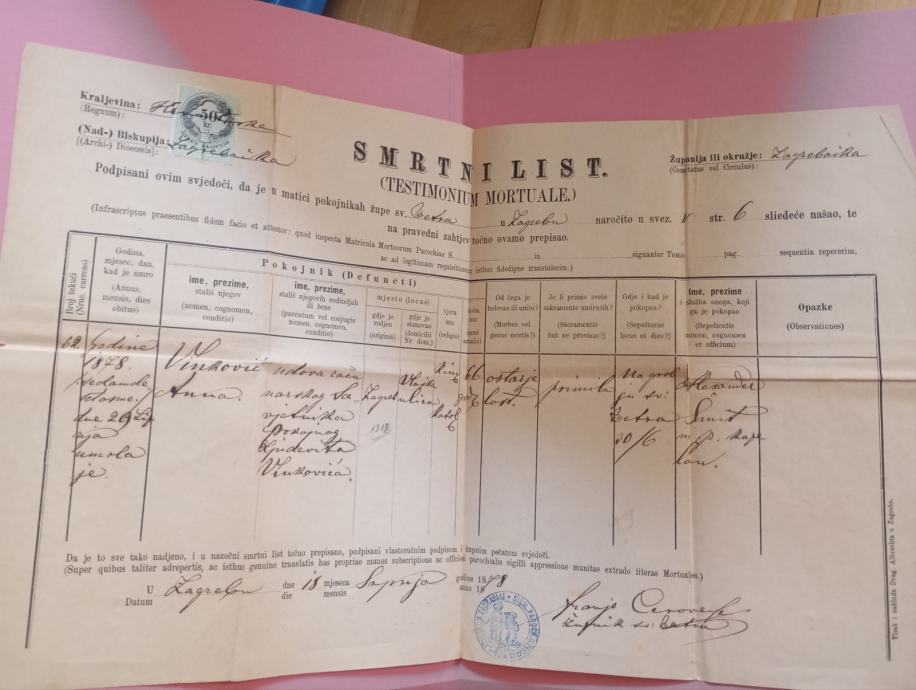 Kraljevina:
(Regnum):
50
kr.
(Nad-) Biskupija: Zagrebačka
[(Archi-) Dioecesis]:
SMRTNI LIST.
(TESTIMONIUM MORTUALE.)
Županija ili okružje: Zagrebačka
(Comitatus vel Circulus):
Podpisani ovim svjedoči, da je u matici pokojnikah župe sv. Petra u Zagrebu naročito u svez. V str. 6 sliedeće našao, te
na pravedni zahtjev točno ovamo prepisao.
(Infrascriptus praesentibus fidem facio et attestor: quod inspecta Matricula Mortuorum Parochiae S. in signanter Tomo pag. sequentia repererim,
ac ad legitimam requisitionem isthuc fidedigne transtulerim.)
Broj tekući
(Nrus. currens)
Godina, mjesec, dan, kad je umro
(Annus, mensis, dies obitus)
Pokojnik (Defuncti)
ime, prezime, stališ njegov
(nomen, cognomen, conditio)
ime, prezime, stališ njegovih roditeljah ili žene
(parentum vel conjugis nomen, cognomen, conditio)
mjesto (locus)
gdje je rodjen
(originis)
gdje je stanovao
(domicilii Nr. dom.)
vjera mu
(religio)
Od čega je bolovao ili umro?
(Morbus vel genus mortis?)
Je li primio svete sakramente umirućih?
(Sacramentis fuit ne provisus?)
Gdje i kad je pokopan?
(Sepulturae locus et dies?)
Ime, prezime i služba onoga, koji ga je pokopao
(Sepelientis nomen, cognomen et officium)
Opazke
(Observationes)
62.
Godine
1878.
dne 26
umrla
je.
Vinković
Anna.
udova
pokojnog
Ljudevita
Vinkovića.
Zagreb
1812
Vlaška
ulica
66
primila
Na grob
Petra
30/6
Alexander
Šmit
m. p. kape
lan.
Da je to sve tako nadjeno, i u nazočni smrtni list točno prepisano, podpisani vlastoručnim podpisom i župnim pečatom svjedoči.
(Super quibus taliter adrepertis, ac isthuc genuine translatis has propriae manus subscriptione ac officiosi parochialis sigilli appressione munitas extrado literas Mortuales.)
U Zagrebu dne 18 mjeseca Srpnja godine 1878
Datum die mensis anno 18
Franjo Cerovec
Župnik sv. Petra
Tisak i naklada Drag. Albrechta u Zagrebu.